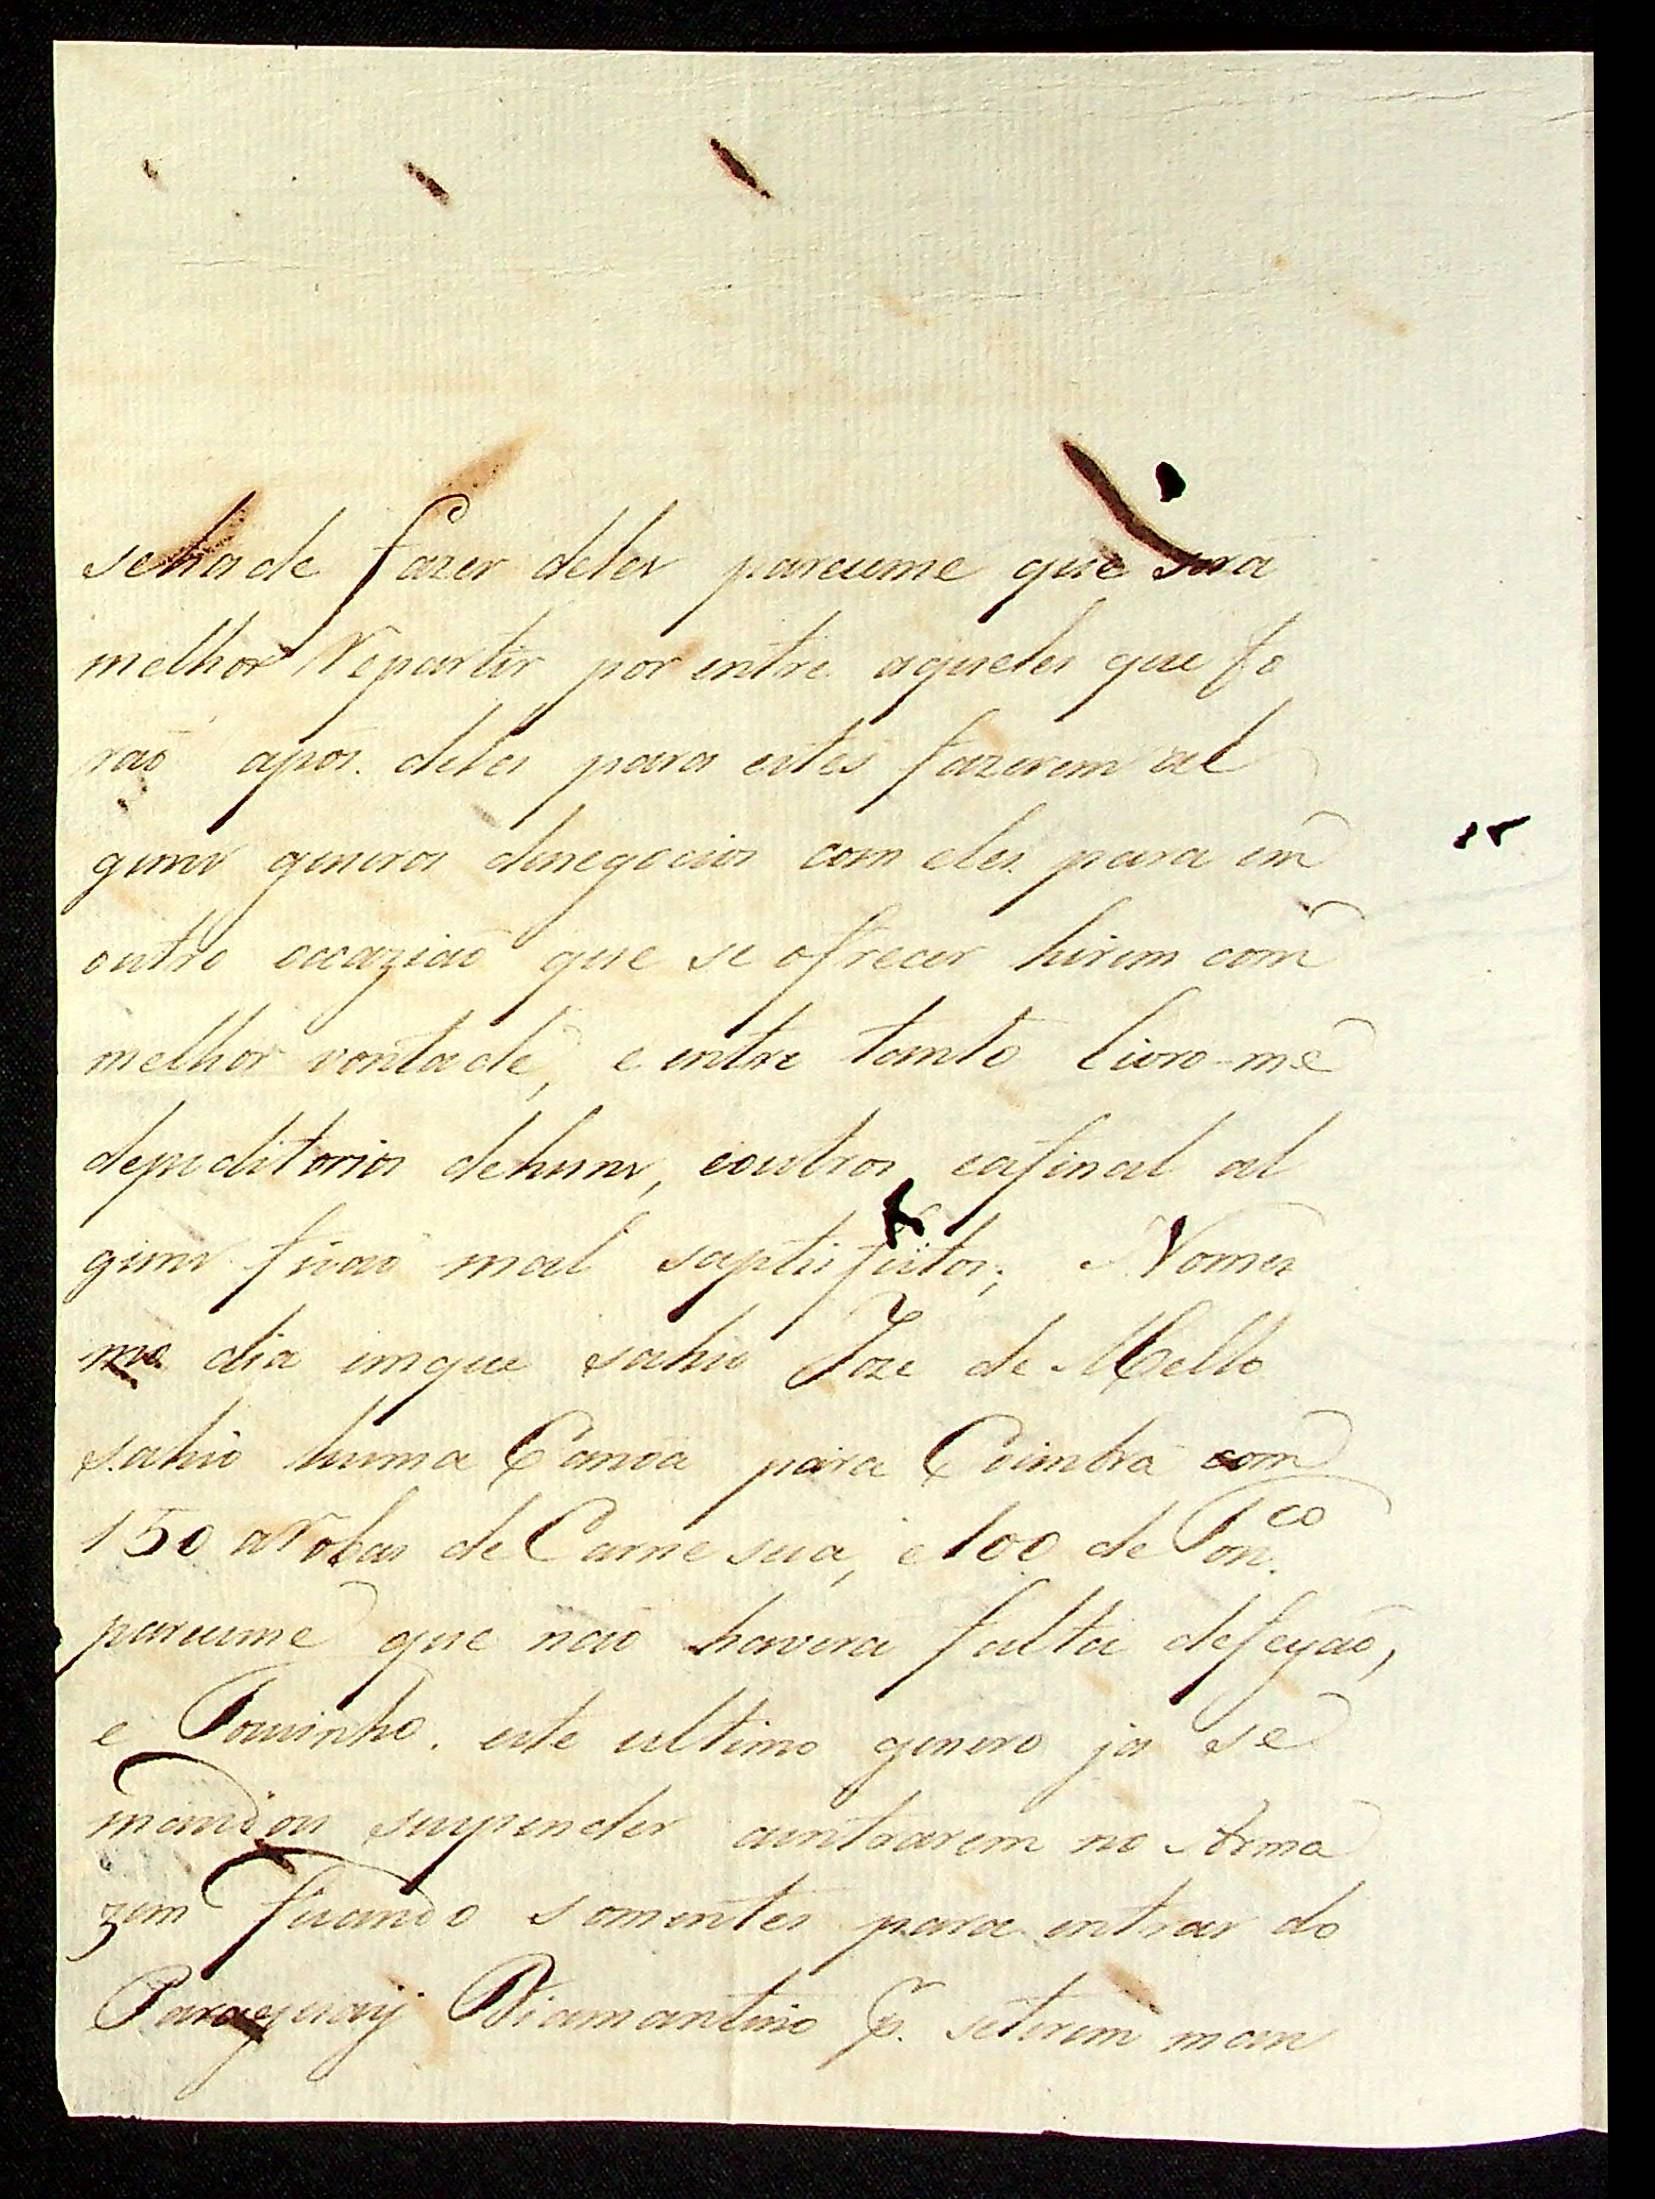 sehade fazer deles pareceme que sera
melhor Repartir por entre aqueles que fo
raõ apos. deles para estes fazerem al
guns generos denegocios com eles para em
outro occaziaõ que se ofrecer hirem com
melhor vontade, e entre tanto livro-me
depeditorios dehuns, eoutros, eafinal al
guns ficaõ mal saptisfeitos; Nomes
mo dia emque sahio Joze de Mello
sahio huma Canôa para Coimbra com
150 aRobas de Carne seca, e 100 de Ton.co
pareceme que naõ havera falta defeyaõ,
e Toucinho. este ultimo genero ja se
mandou suspender aentrarem no Arma
zem ficando somentes para entrar do
Paraguay Diamantino p. seterem man